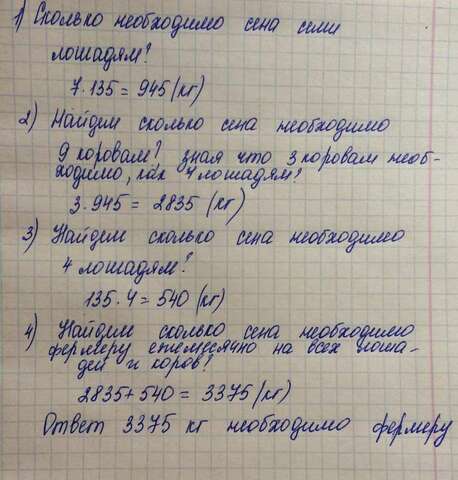 1) Сколько необходимо сена семи
лошадям?
7·135 = 945 (кг)
2) Найдем сколько сена необходимо
9 коровам? зная что 3 коровам необ-
ходимо, как 7 лошадям?
3·945 = 2835 (кг)
3) Найдем сколько сена необходимо
4 лошадям?
135·4 = 540 (кг)
4) Найдим сколько сена необходимо
фермеру ежемесячно на всех лоша-
дей и коров?
2835 + 540 = 3375 (кг)
Ответ 3375 кг необходимо фермеру